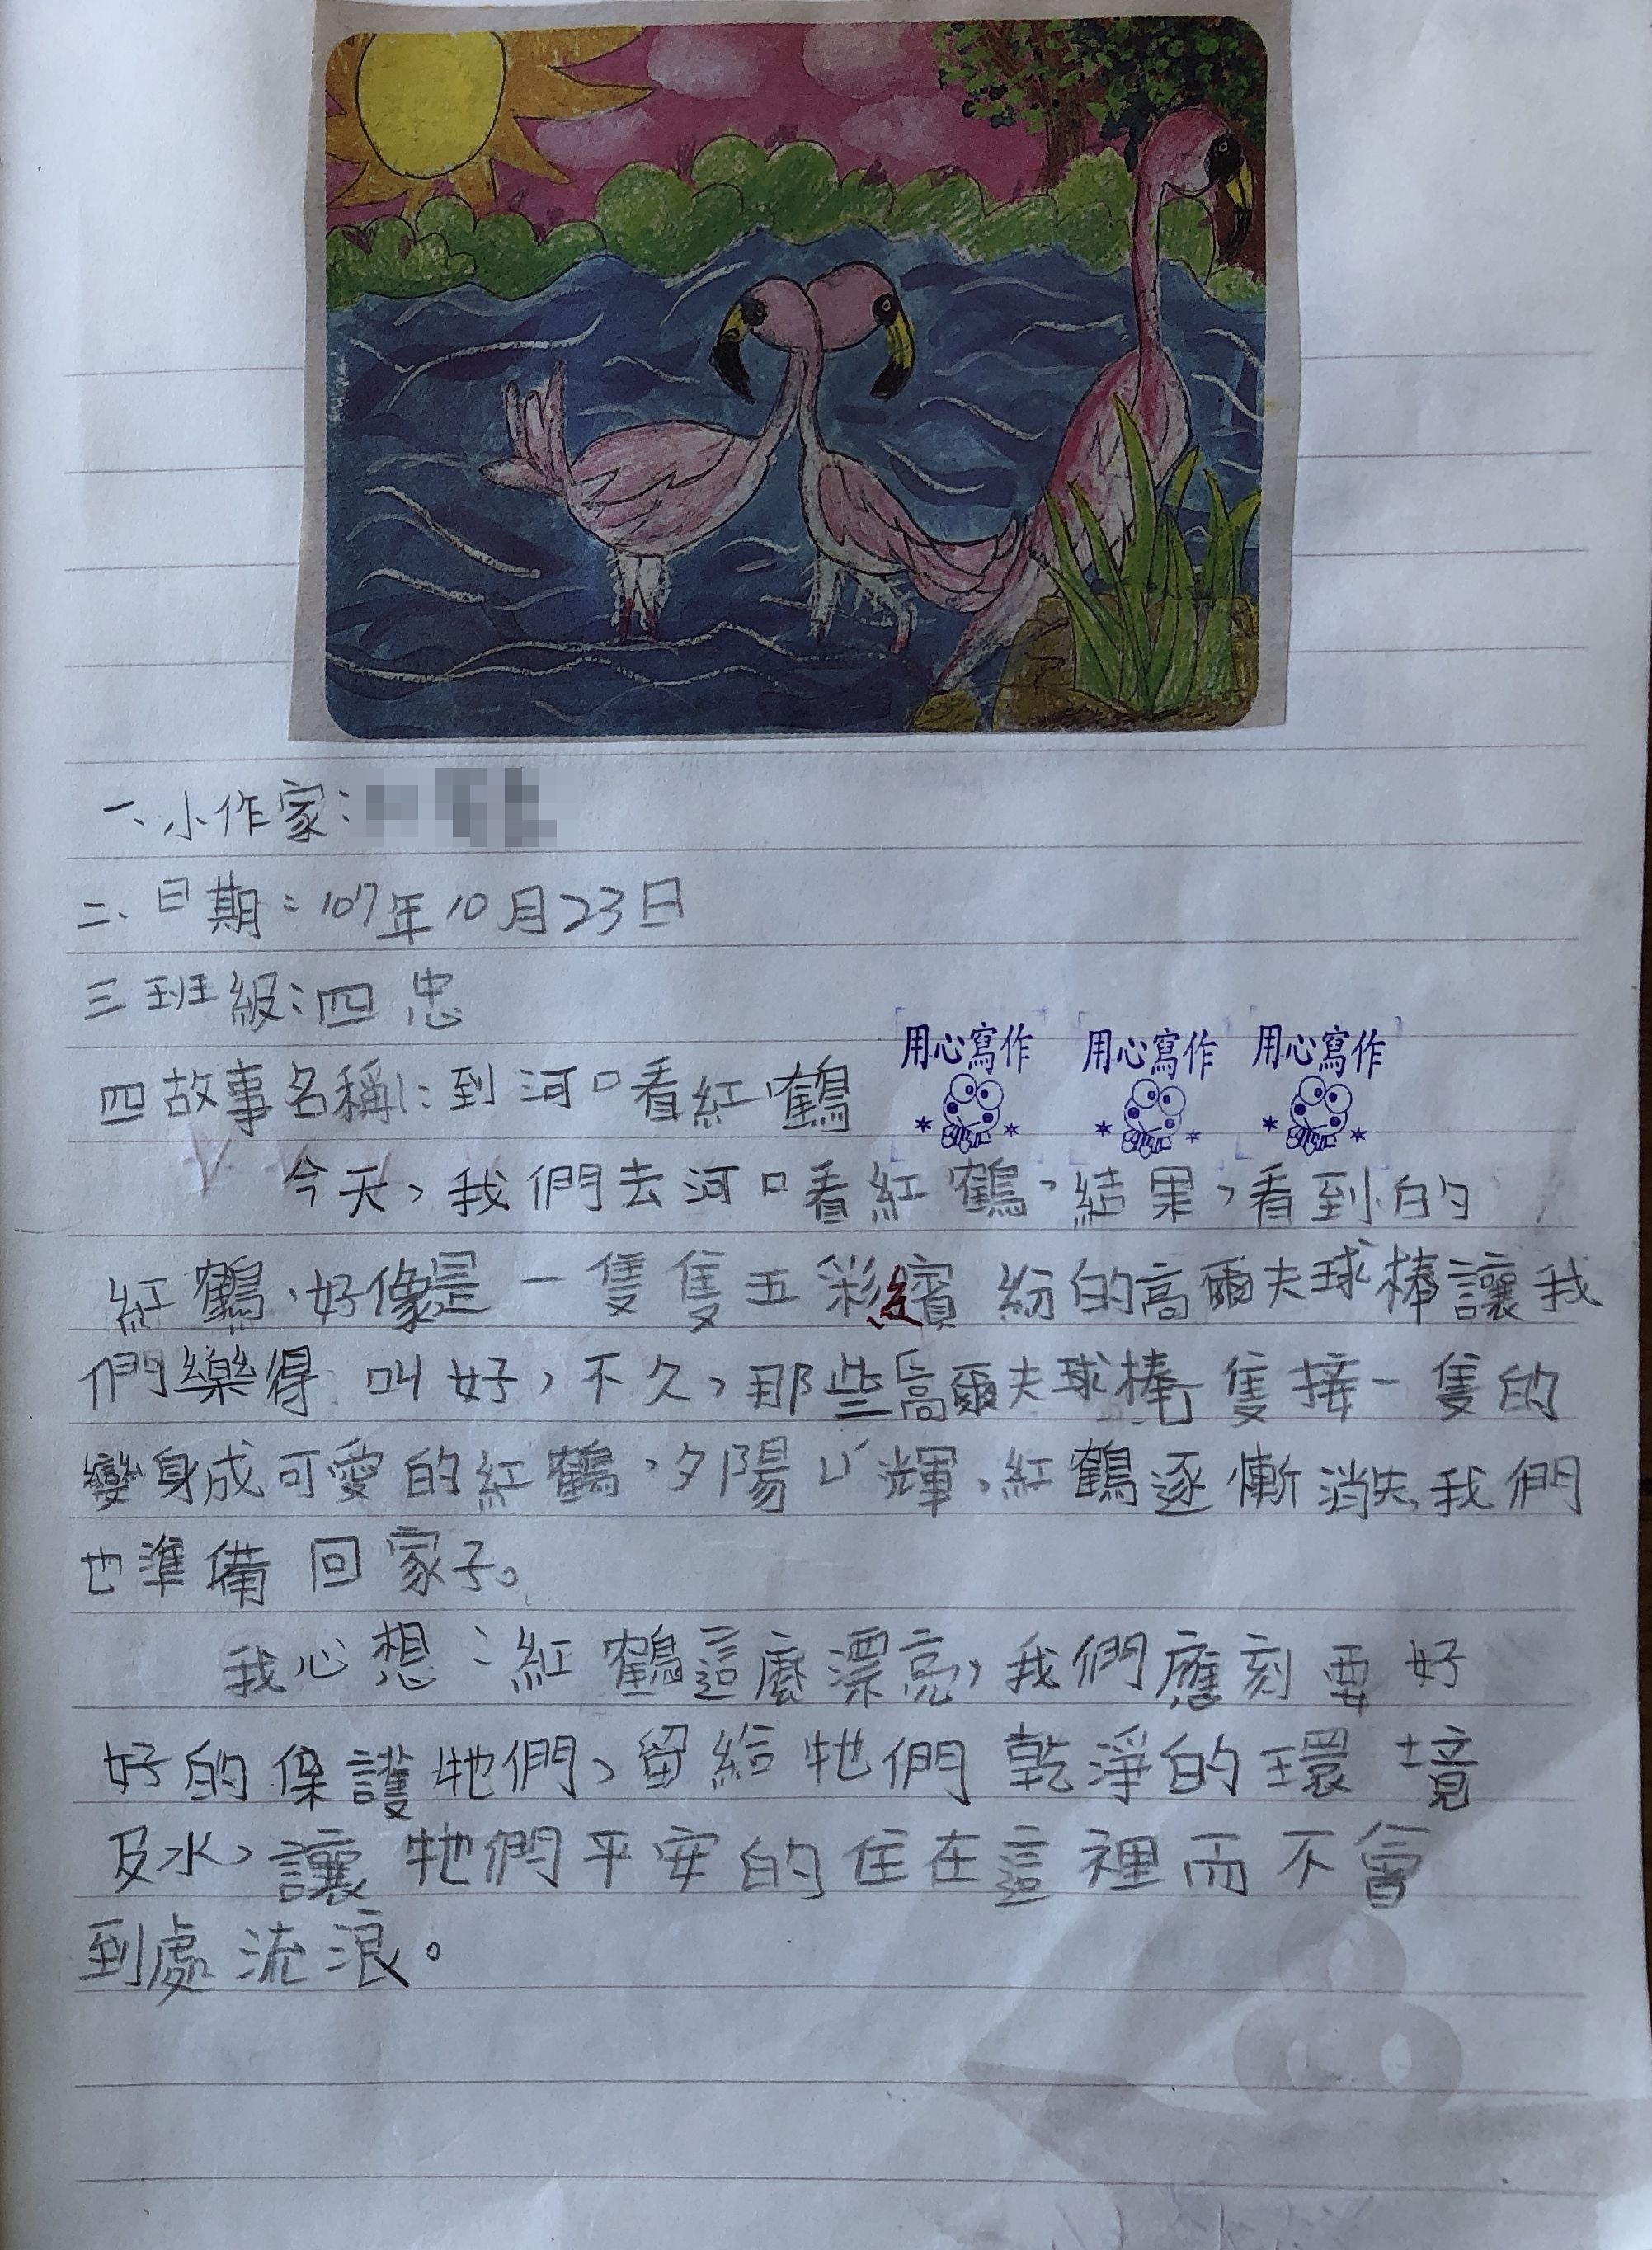 一、小作家：
二、日期：107年10月23日
三班級：四忠
四故事名稱：到河口看紅鶴
用心寫作 用心寫作 用心寫作
今天，我們去河口看紅鶴，結果，看到的
紅鶴、好像是一隻隻五彩繽紛的高爾夫球棒讓我
們樂得叫好，不久，那些高爾夫球棒一隻接一隻的
變身成可愛的紅鶴，夕陽輝，紅鶴逐慚消失，我們
也準備回家子。
我心想：紅鶴這麼漂亮，我們應刻要好
好的保護牠們、留給牠們乾淨的環境
及水，讓牠們平安的住在這裡而不會
到處流浪。